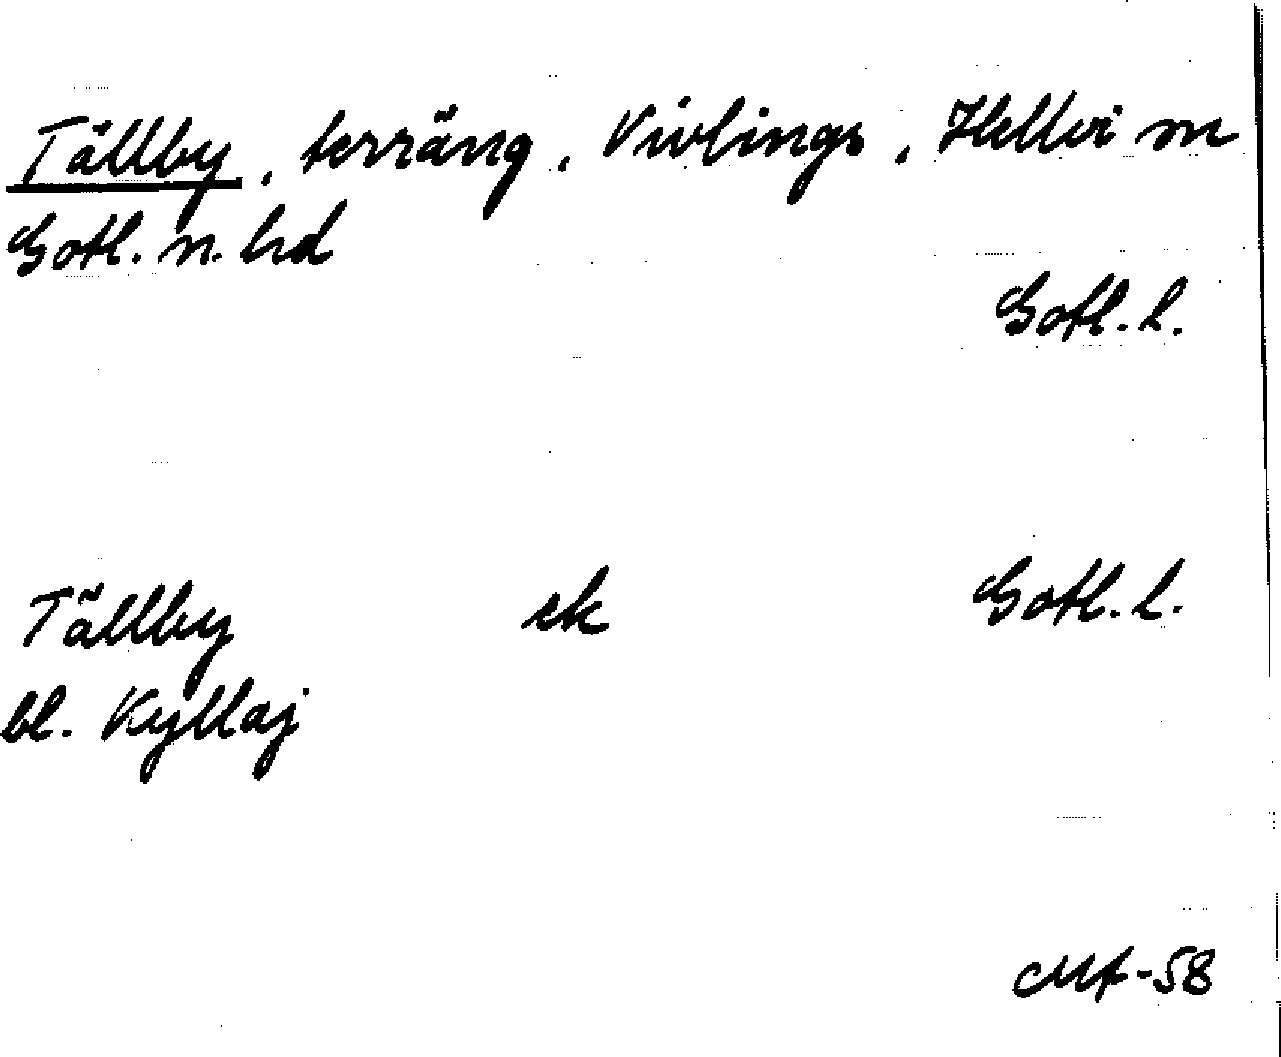 Tällby, terräng, Vivlings, Hellvi sn
Gotl. n. hd
Gotl. l.
Tällby ek Gotl. l.
bl. Kyllaj
Mf-58